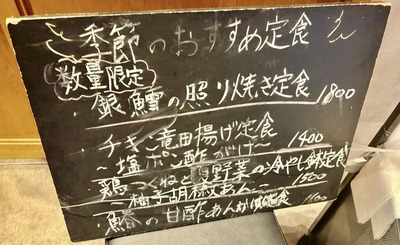 季節のおすすめ定食
数量限定
銀鱈の照り焼き定食 1890
チキン竜田揚げ定食
〜塩ポン酢がけ〜 1400
鶏つくねと夏野菜の冷やし鉢定食
〜柚子胡椒あん〜 1500
鯵の甘酢あんかけ定食 1100